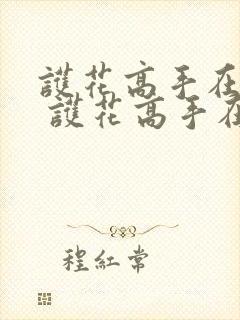 護花高手在
護花高手在
程紅常